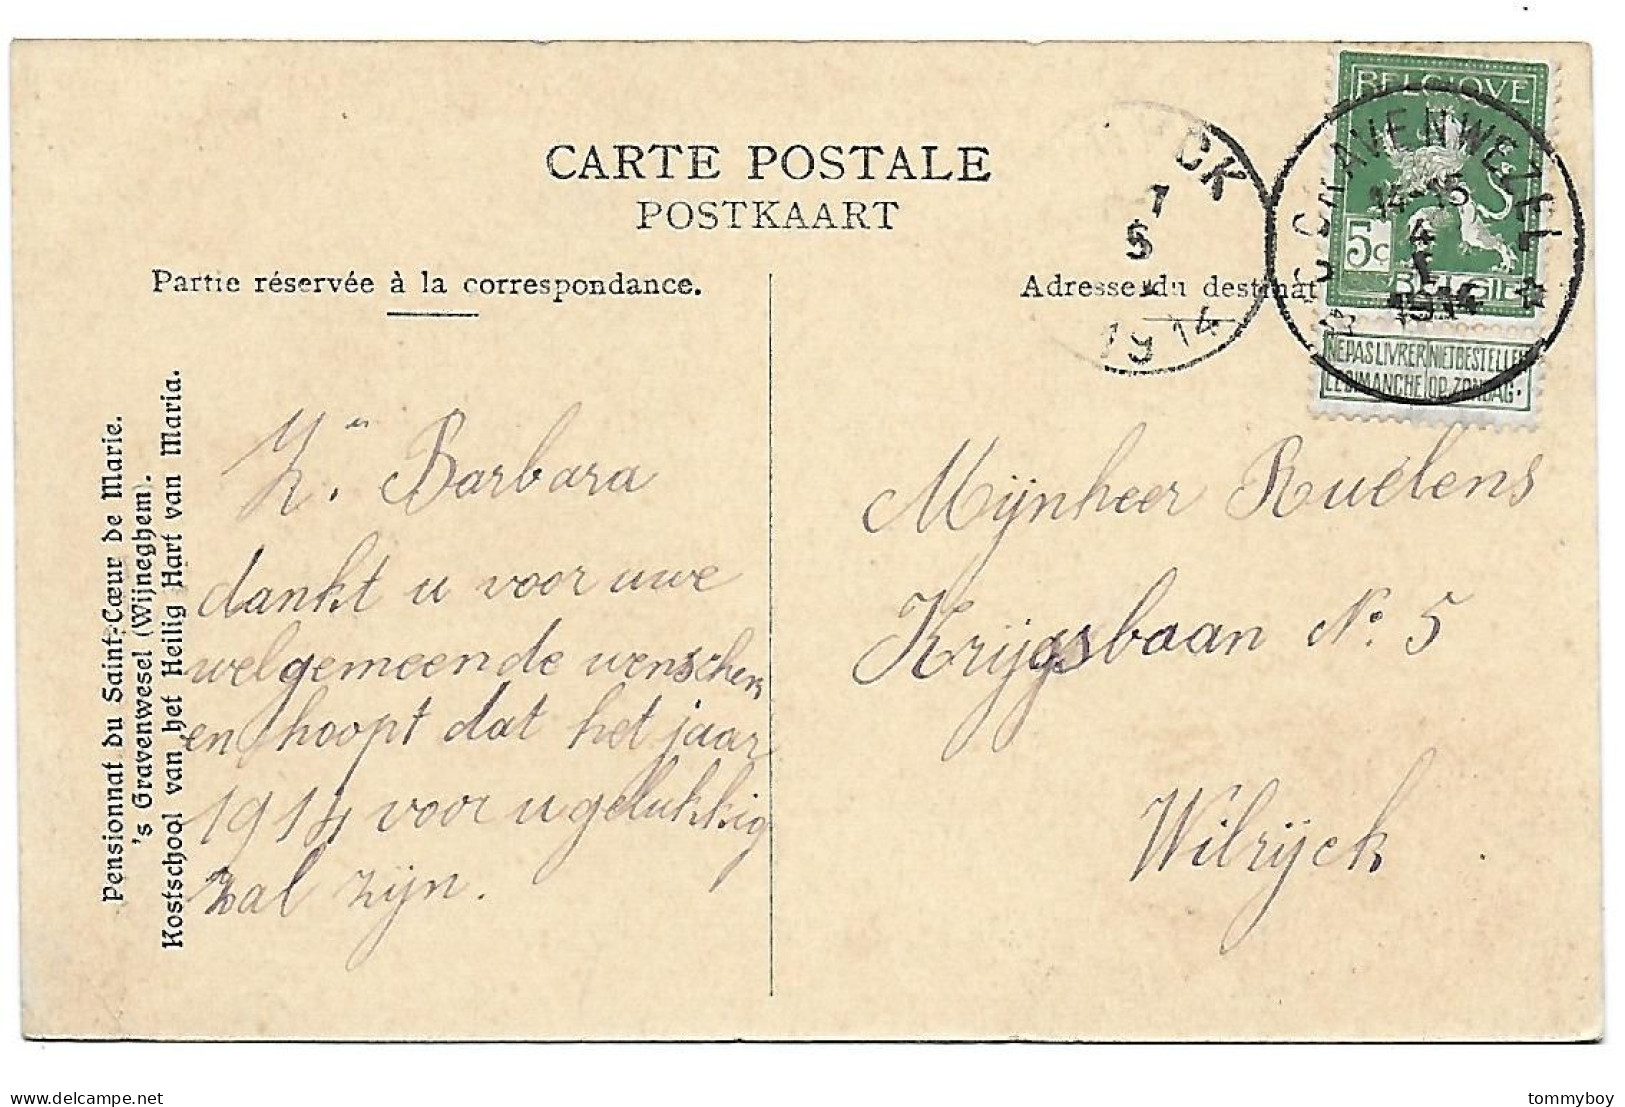 CARTE POSTALE
POSTKAART
Partie réservée à la correspondance.
Adresse du destinat
BELGIQUE
5c
BELGIË
NE PAS LIVRER NIET BESTELLEN
LE DIMANCHE OP ZONDAG.
GRAVENWEZEL
14-15
4
I
1914
CK
1
5
1914
Pensionnat du Saint-Cœur de Marie.
's Gravenwesel (Wijneghem).
Kostschool van het Heilig Hart van Maria.
Zr. Barbara
dankt u voor uwe
welgemeende wenschen
en hoopt dat het jaar
1914 voor u gelukkig
zal zijn.
Mijnheer Ruelens
Krijgsbaan No. 5
Wilrijck
tommyboy